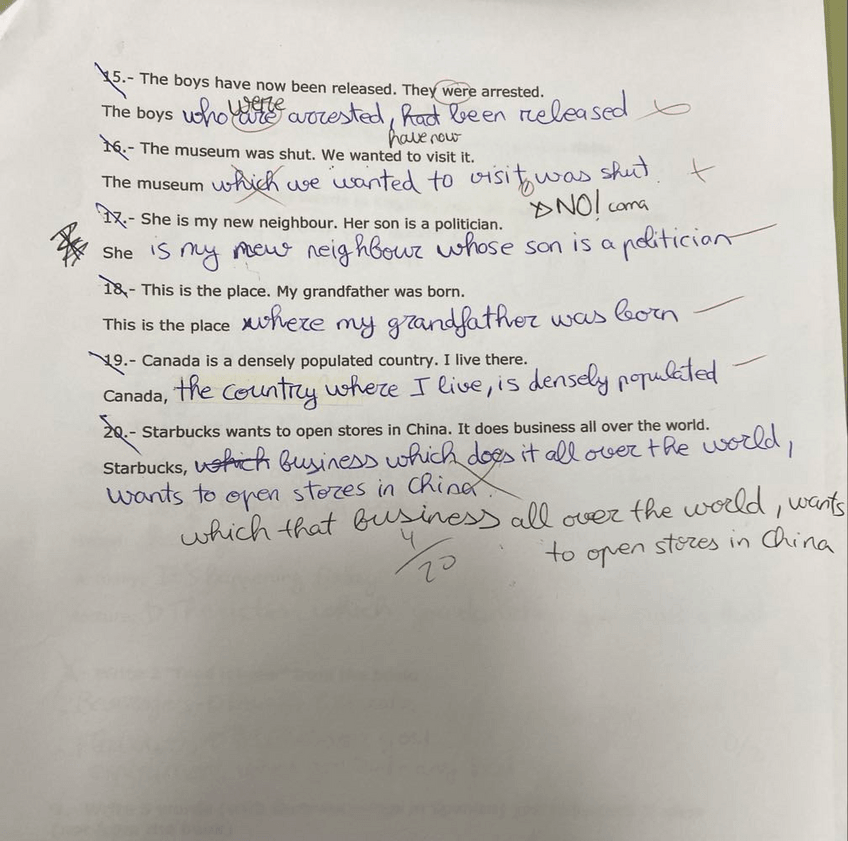 15.- The boys have now been released. They were arrested.
were
The boys who are arrested, had been released
have now
16.- The museum was shut. We wanted to visit it.
The museum which we wanted to visit, was shut.
NO! coma
17.- She is my new neighbour. Her son is a politician.
She is my new neighbour whose son is a politician
18.- This is the place. My grandfather was born.
This is the place where my grandfather was born
19.- Canada is a densely populated country. I live there.
Canada, the country where I live, is densely populated
20.- Starbucks wants to open stores in China. It does business all over the world.
Starbucks, which business which does it all over the world,
wants to open stores in China.
which that business all over the world, wants
to open stores in China
4/20